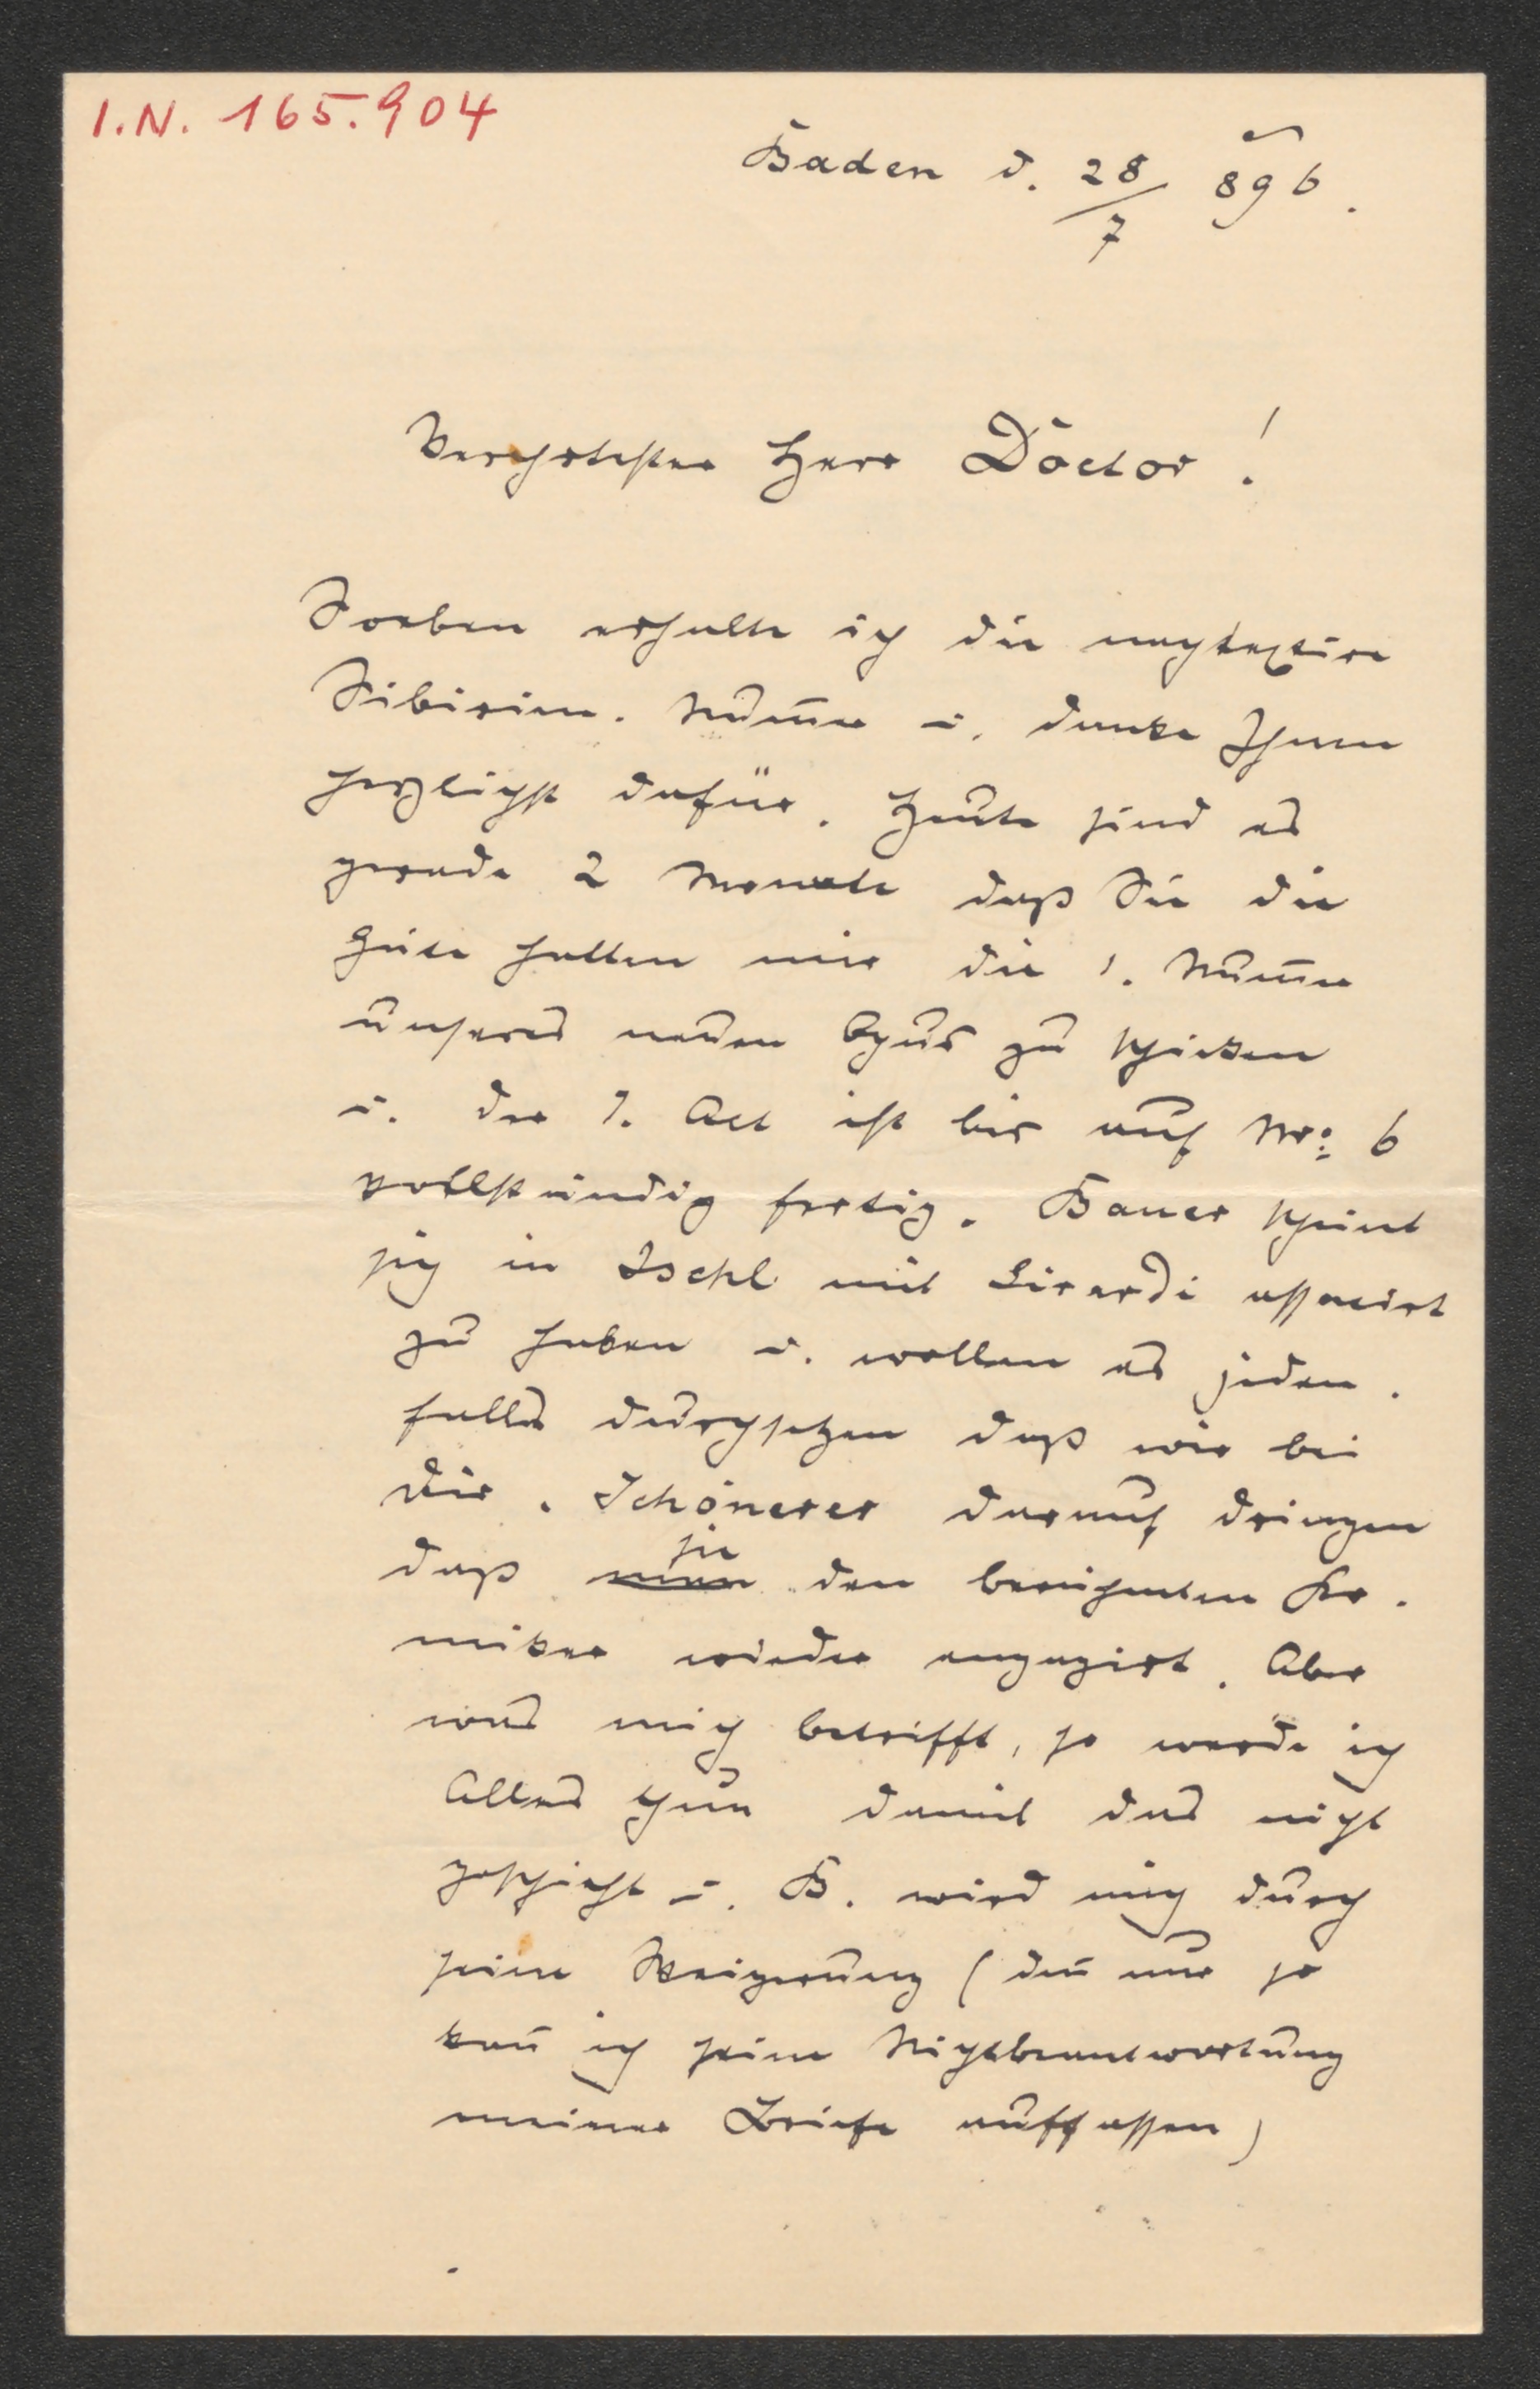 I.N. 165.904
Baden d. 28/7 896.
Verehrtester Herr Doctor!
Soeben erhalte ich die nachtextirte
Sibirien-Num̄er u. danke Ihnen
herzlichst dafür. Heute sind es
gerade 2 Monate daß Sie die
Güte hatten mir die 1. Num̄er
unseres neuen Opus zu schicken
u. der 1. Act ist bis auf Nro: 6
vollständig fertig. Bauer scheint
sich in Ischl mit Girardi associrt
zu haben u. wollen es jeden-
falls durchsetzen daß wir bei
Dir. Schönerer darauf dringen
daß man sie den berühmten Ko-
miker wieder engagirt. Aber
was mich betrifft, so werde ich
Alles thun damit das nicht
geschieht u. B. wird mich durch
seine Weigerung (den̄ nur so
kan̄ ich seine Nichtbeantwortung
meiner Briefe auffassen)